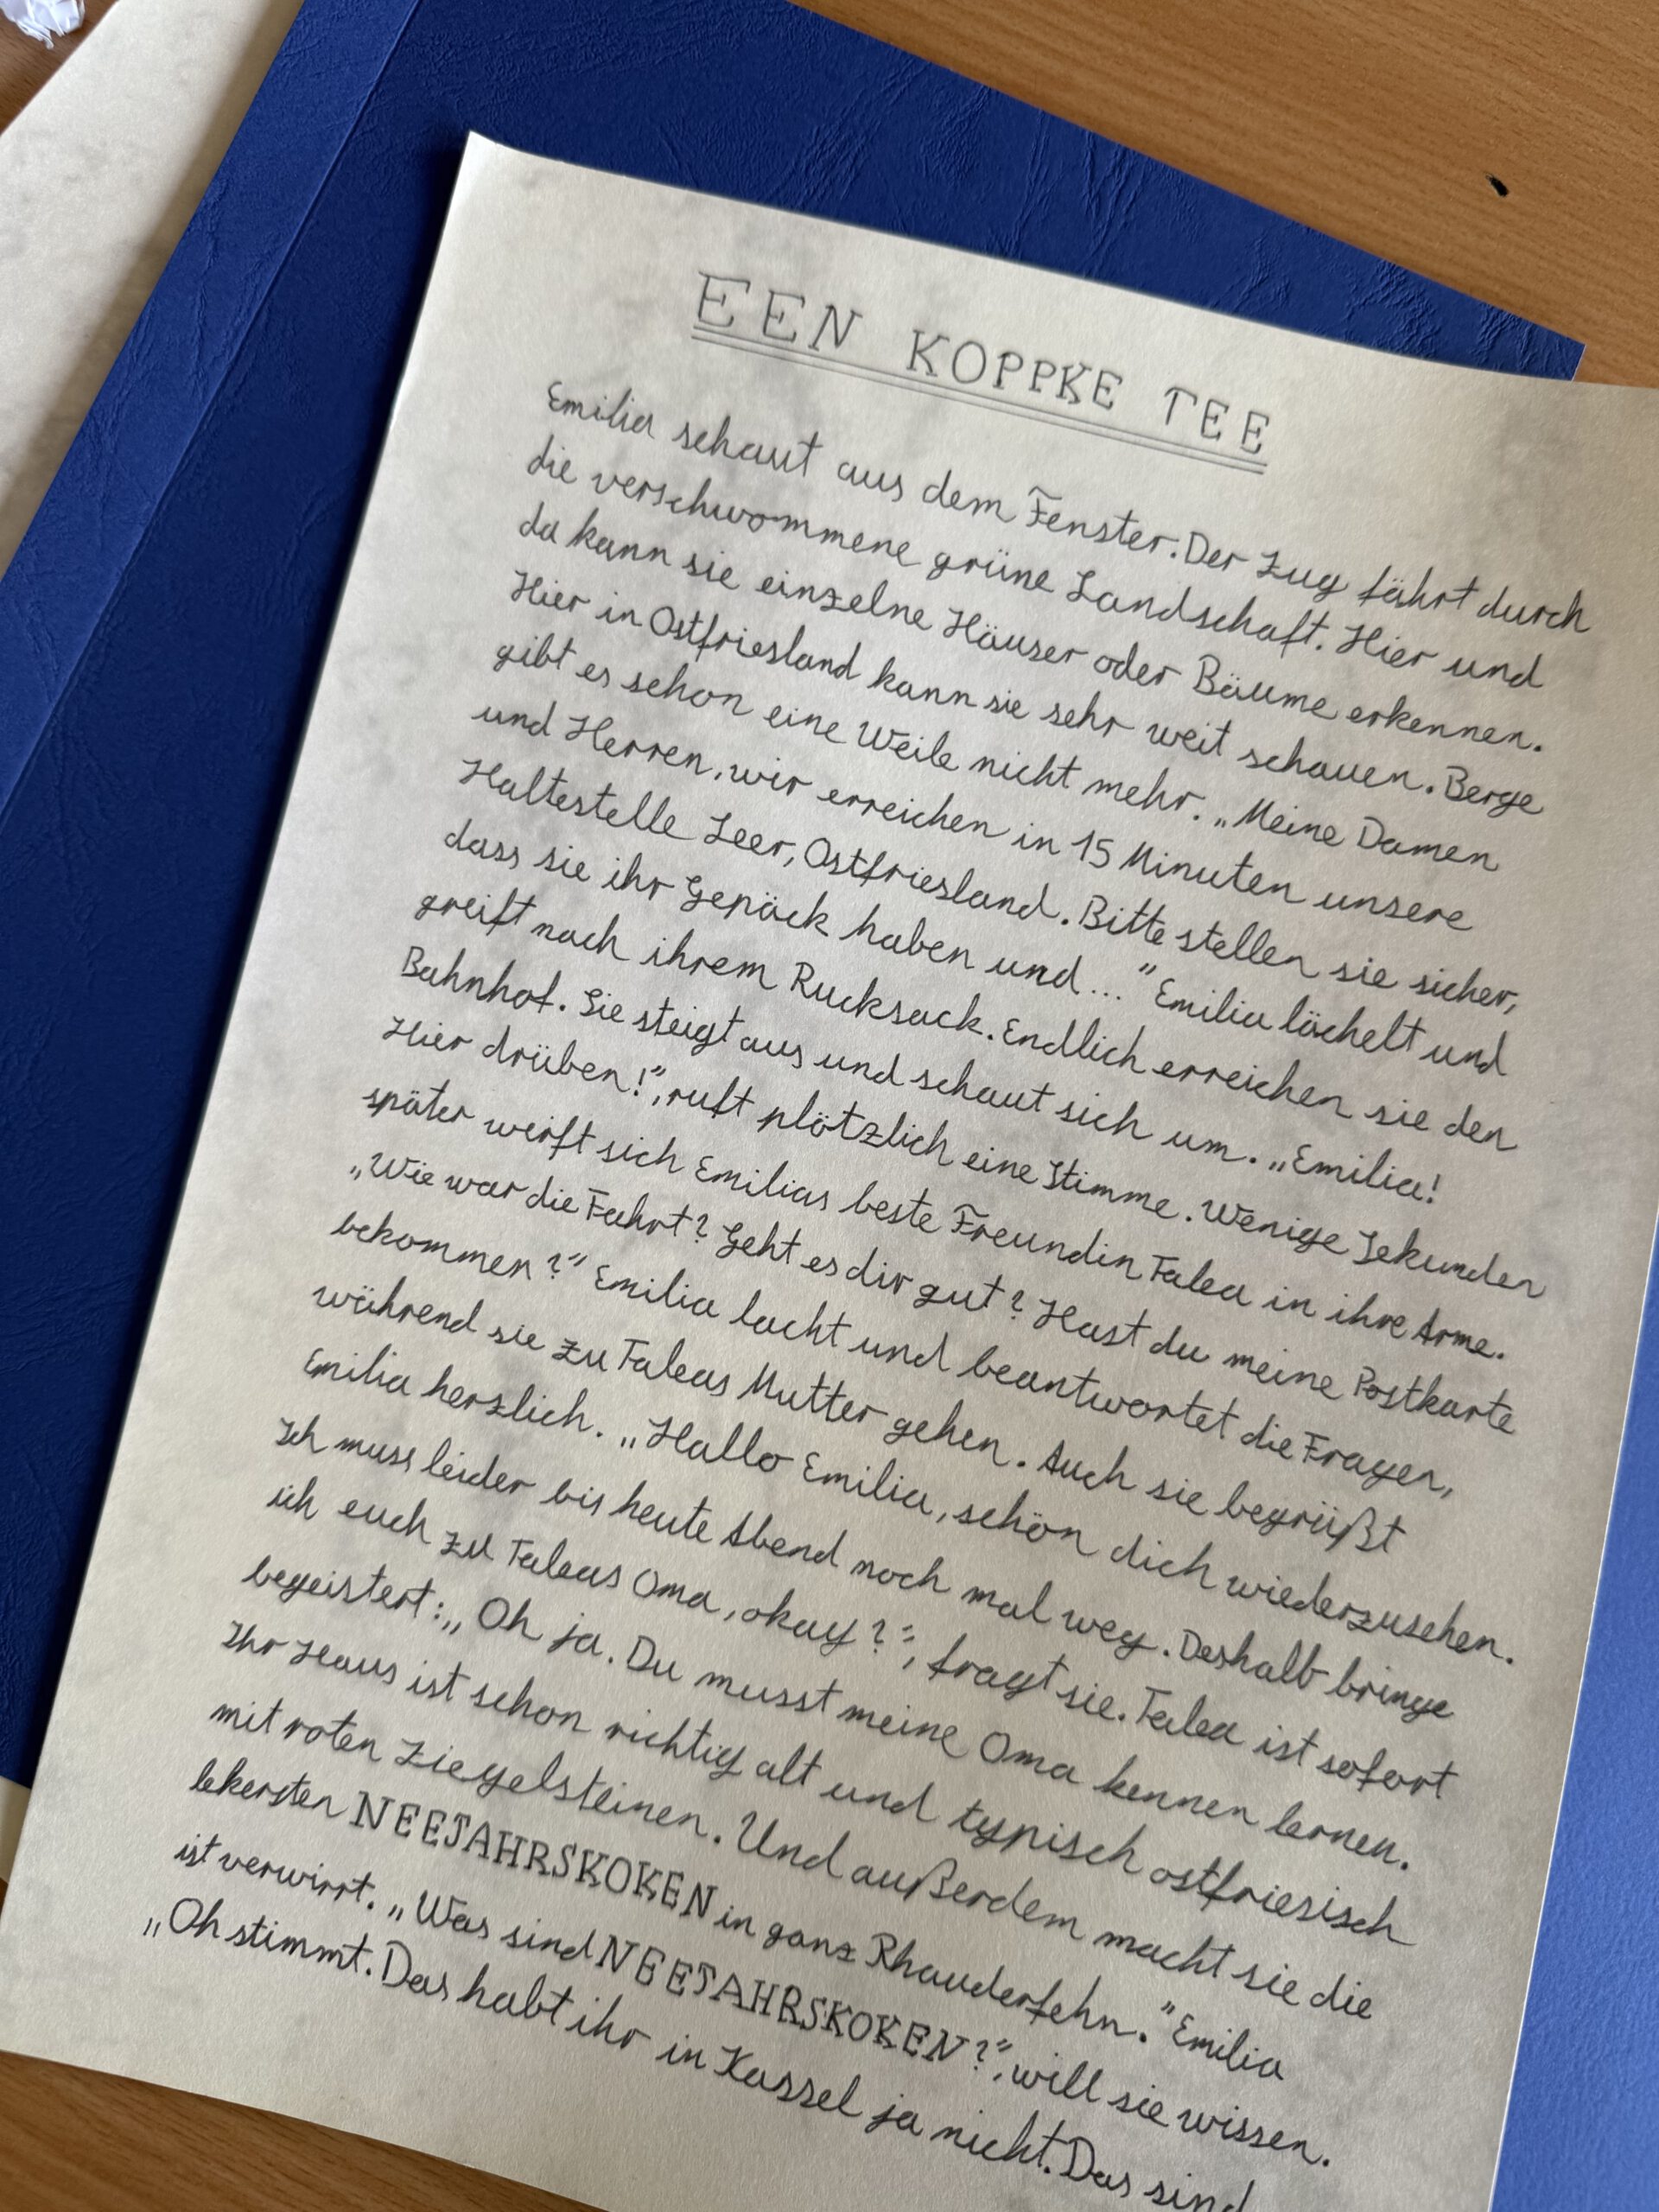 EEN KOPPKE TEE
Emilia schaut aus dem Fenster. Der Zug fährt durch
die verschwommene grüne Landschaft. Hier und
da kann sie einzelne Häuser oder Bäume erkennen.
Hier in Ostfriesland kann sie sehr weit schauen. Berge
gibt es schon eine Weile nicht mehr. „Meine Damen
und Herren, wir erreichen in 15 Minuten unsere
Haltestelle Leer, Ostfriesland. Bitte stellen sie sicher,
dass sie ihr Gepäck haben und..." Emilia lächelt und
greift nach ihrem Rucksack. Endlich erreichen sie den
Bahnhof. Sie steigt aus und schaut sich um. „Emilia!
Hier drüben!", ruft plötzlich eine Stimme. Wenige Sekunden
später wirft sich Emilias beste Freundin Talea in ihre Arme.
„Wie war die Fahrt? Geht es dir gut? Hast du meine Postkarte
bekommen?" Emilia lacht und beantwortet die Fragen,
während sie zu Taleas Mutter gehen. Auch sie begrüßt
Emilia herzlich. „Hallo Emilia, schön dich wiederzusehen.
Ich muss leider bis heute Abend noch mal weg. Deshalb bringe
ich euch zu Taleas Oma, okay?", fragt sie. Talea ist sofort
begeistert: „Oh ja. Du musst meine Oma kennen lernen.
Ihr Haus ist schon richtig alt und typisch ostfriesisch
mit roten Ziegelsteinen. Und außerdem macht sie die
lekersten NEEJAHRSKOKEN in ganz Rhauderfehn." Emilia
ist verwirrt. „Was sind NEEJAHRSKOKEN?", will sie wissen.
„Oh stimmt. Das habt ihr in Kassel ja nicht. Das sind